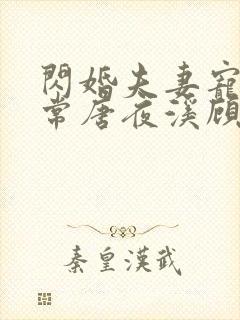 閃婚夫妻寵
常唐夜溪顾
秦皇漢武